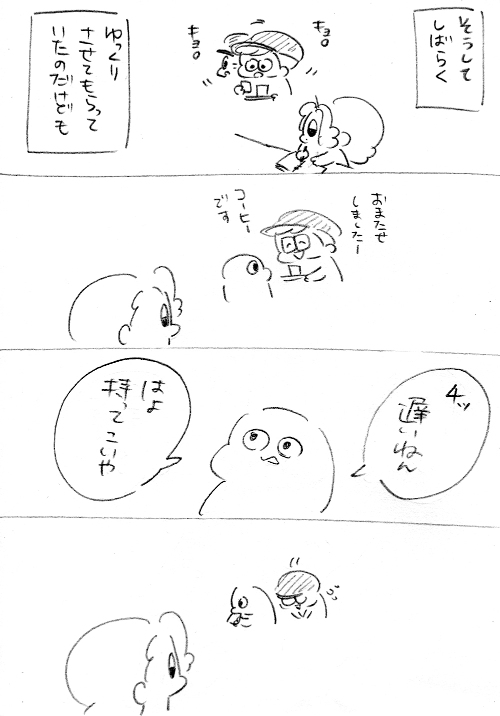 そうして
しばらく
キョロ
キョロ
ゆっくり
させてもらって
いたのだけども
おまたせ
しましたー
コーヒー
です
チッ
遅いねん
はよ
持ってこいや